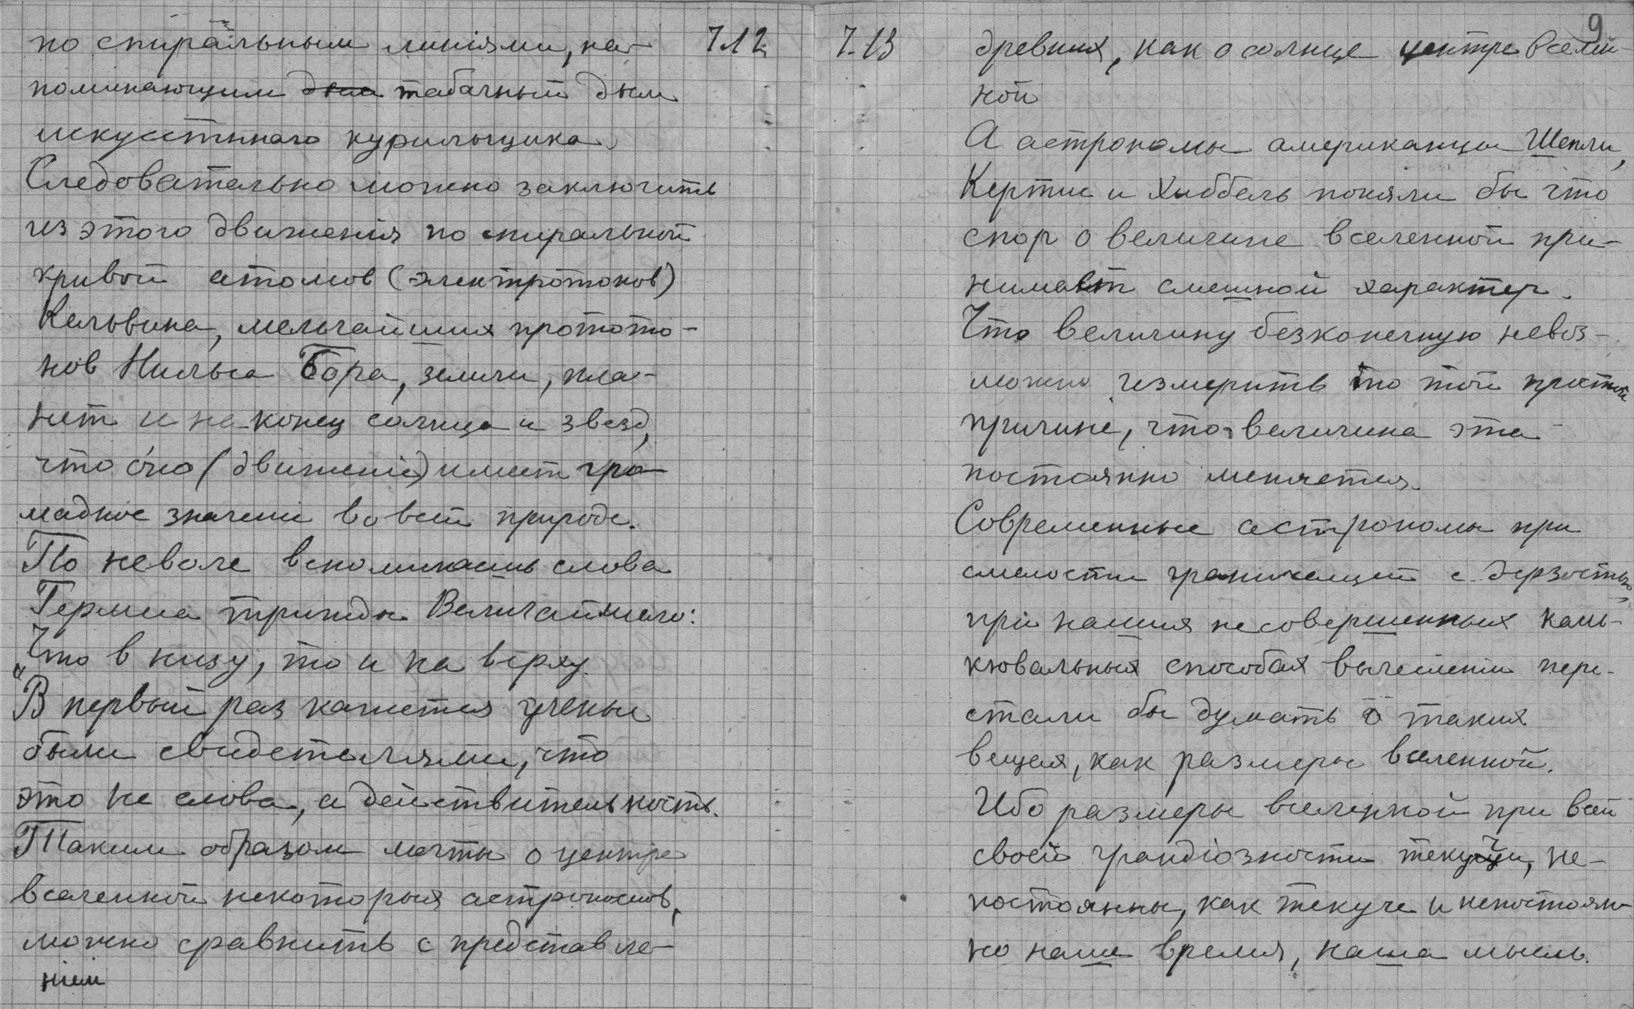 по спиральным линіями, на- 7.12
поминающим дым табачный дым
искусстнаго курильщика.
Следовательно можно заключить
из этого движенія по спиральной
кривой атомов (электротонов)
Кельвина, мельчайших протото-
нов Нильса Бора, земли, пла-
нет и на конец солнца и звезд,
что оно (движеніе) имеет гро-
мадное значеніе во всей природе.
По неволе вспоминаешь слова
Гермеса трижды Величайшаго:
"Что в низу, то и на верху.
В первый раз кажется ученые
были свидетелями, что
это не слова, а действительность.
Таким образом мечты о центре
вселенной некоторых астрономов,
можно сравнить с представле-
нием
7.13 9
древних, как о солнце центре вселен-
ной
А астрономы американцы Шепли,
Кертис и Хаббель поняли бы что
спор о величине вселенной при-
нимает смешной характер.
Что величину безконечную невоз-
можно измерить по той простой
причине, что величина эта
постоянно меняется.
Современные астрономы при
смелости граничащей с дерзостью,
при наших несовершенных каль-
кювальных способах вычисления пере-
стали бы думать о таких
вещах, как размеры вселенной.
Ибо размеры вселенной при всей
своей грандіозности текучи, не-
постоянны, как текуче и непостоян-
но наше время, наша мысль.